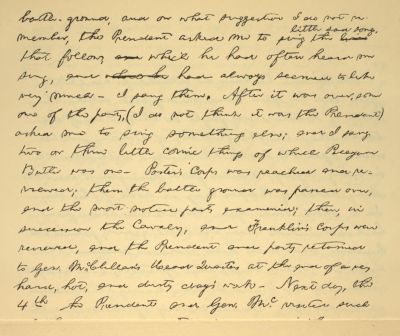 battle-ground, and on what suggestion I do not re-
member, the President asked me to sing the
little sad song,
that follows, which he had often heard me
sing, and had always seemed to like
very much. I sang them. After it was over, some
one of the party, (I do not think it was the President)
asked me to sing something else; and I sang
two or three little comic things of which Picayune
Butler was one. Porter's Corps was reached and re-
viewed; then the battle ground was passed over,
and the most noted parts examined; then, in
succession the Cavalry, and Franklin's Corps were
reviewed, and the President and party returned
to Gen. McClellan's Head Quarters at the end of a very
hard, hot, and dusty day's work. Next day, the
4th the President and Gen. Mc visited such